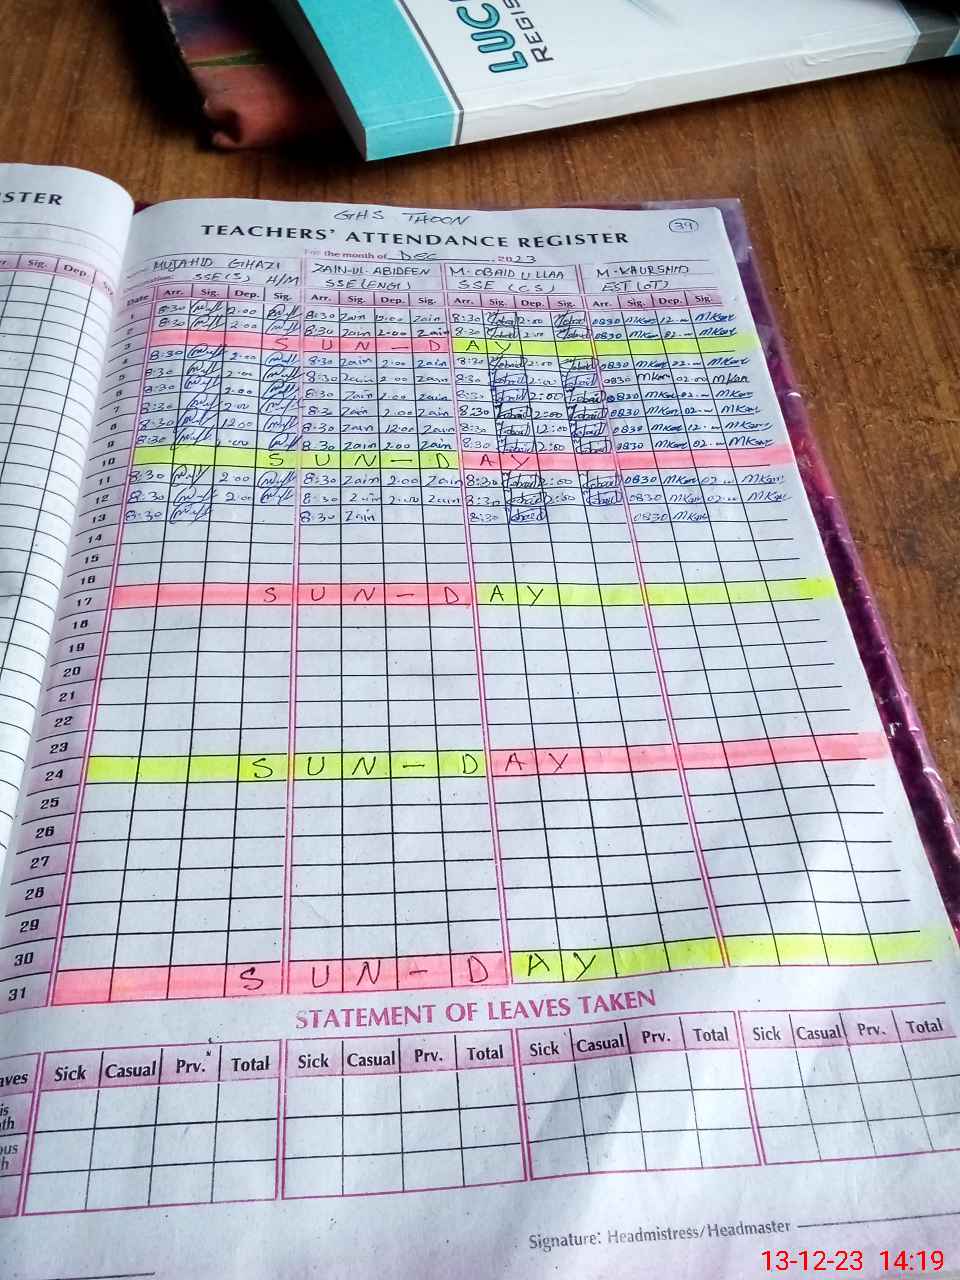 LUC
REGIS
STER
Sig. Dep.
GHS THOON
39
TEACHERS' ATTENDANCE REGISTER
For the month of DEC 2023
MUJAHID GHAZI ZAIN-UL-ABIDEEN M.OBAID ULLAA M.KHURSHID
SSE(S) H/M SSE(ENG) SSE (CS) EST(OT)
Date Arr. Sig. Dep. Sig. Arr. Sig. Dep. Sig. Arr. Sig. Dep. Sig. Arr. Sig. Dep. Sig.
1 8:30 12:00 8:30 Zain 12:00 Zain 8:30 Obaid 12:00 Obaid 0830 MKan 12.- MKan
2 8:30 2:00 8:30 Zain 2:00 Zain 8:30 Obaid 2:00 Obaid 0830 MKan 02.- MKan
3 SUN-DAY
4 8:30 2:00 8:30 Zain 2:00 Zain 8:30 Obaid 2:00 Obaid 0830 MKan 02.- MKan
5 8:30 2:00 8:30 Zain 2:00 Zain 8:30 Obaid 2:00 Obaid 0830 MKan 02.00 MKan
6 8:30 2:00 8:30 Zain 2:00 Zain 8:30 Obaid 2:00 Obaid 0830 MKan 02.- MKan
7 8:30 2:00 8:30 Zain 2:00 Zain 8:30 Obaid 2:00 Obaid 0830 MKan 02.- MKan
8 8:30 12:00 8:30 Zain 12:00 Zain 8:30 Obaid 12:00 Obaid 0830 MKan 12.- MKan
9 8:30 8:30 Zain 2:00 Zain 8:30 Obaid 2:00 Obaid 0830 MKan 02.- MKan
10 SUN-DAY
11 8:30 2:00 8:30 Zain 2:00 Zain 8:30 Obaid 2:00 Obaid 0830 MKan 02.- MKan
12 8:30 2:00 8:30 Zain 2:00 Zain 8:30 Obaid 2:00 Obaid 0830 MKan 02.- MKan
13 8:30 8:30 Zain 8:30 Obaid 0830 MKan
14
15
16
17 SUN-DAY
18
19
20
21
22
23
24 SUN-DAY
25
26
27
28
29
30
31 SUN-DAY
STATEMENT OF LEAVES TAKEN
aves Sick Casual Prv. Total Sick Casual Prv. Total Sick Casual Prv. Total Sick Casual Prv. Total
is
th
ous
h
Signature: Headmistress/Headmaster
13-12-23 14:19